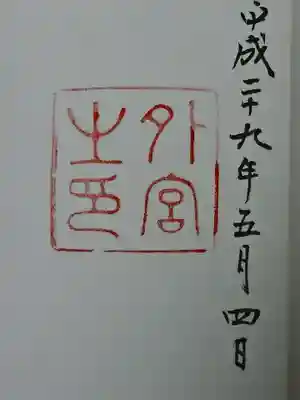 平成二十九年五月四日
外宮
之印